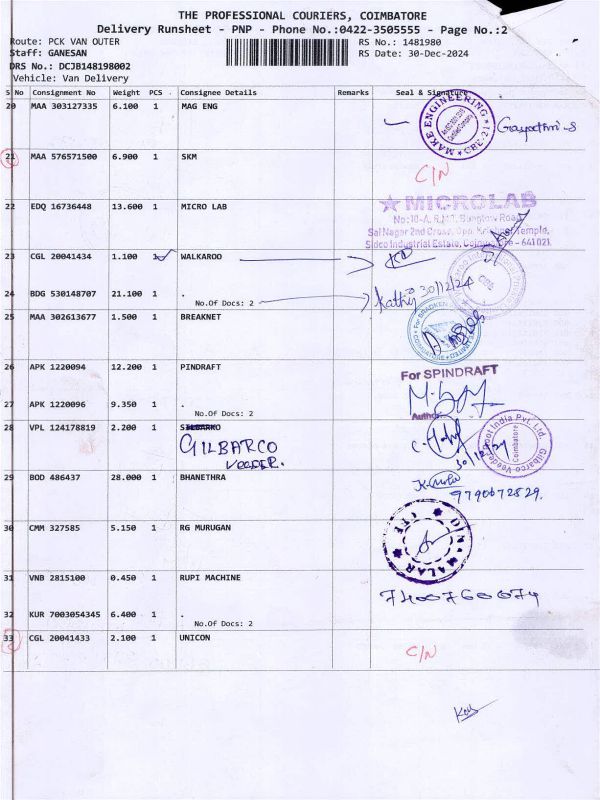 THE PROFESSIONAL COURIERS, COIMBATORE
Delivery Runsheet - PNP - Phone No.:0422-3505555 - Page No.:2
Route: PCK VAN OUTER RS No.: 1481980
Staff: GANESAN RS Date: 30-Dec-2024
DRS No.: DCJB148198002
Vehicle: Van Delivery
S No Consignment No Weight PCS Consignee Details Remarks Seal & Signature
20 MAA 303127335 6.100 1 MAG ENG
MAKE ENGINEERING
CBE-21
Gayathri-S
21 MAA 576571500 6.900 1 SKM
C/N
22 EDQ 16736448 13.600 1 MICRO LAB
MICROLAB
Sai Nagar 2nd Cross, Opp. Krishna Temple,
Sidco Industrial Estate, Coimbatore - 641 021.
23 CGL 20041434 1.100 1 WALKAROO
24 BDG 530148707 21.100 1 .
No.Of Docs: 2
Kathir 30/12/24
25 MAA 302613677 1.500 1 BREAKNET
26 APK 1220094 12.200 1 PINDRAFT
For SPINDRAFT
27 APK 1220096 9.350 1 .
No.Of Docs: 2
28 VPL 124178819 2.200 1
GILBARCO
VEEDER.
Gilbarco-Veeder Root India Pvt. Ltd.
Coimbatore
30/12/24
29 BOD 486437 28.000 1 BHANETHRA
9790672829.
30 CMM 327585 5.150 1 RG MURUGAN
DINAMALAR
31 VNB 2815100 0.450 1 RUPI MACHINE
7400760074
32 KUR 7003054345 6.400 1 .
No.Of Docs: 2
33 CGL 20041433 2.100 1 UNICON
C/N